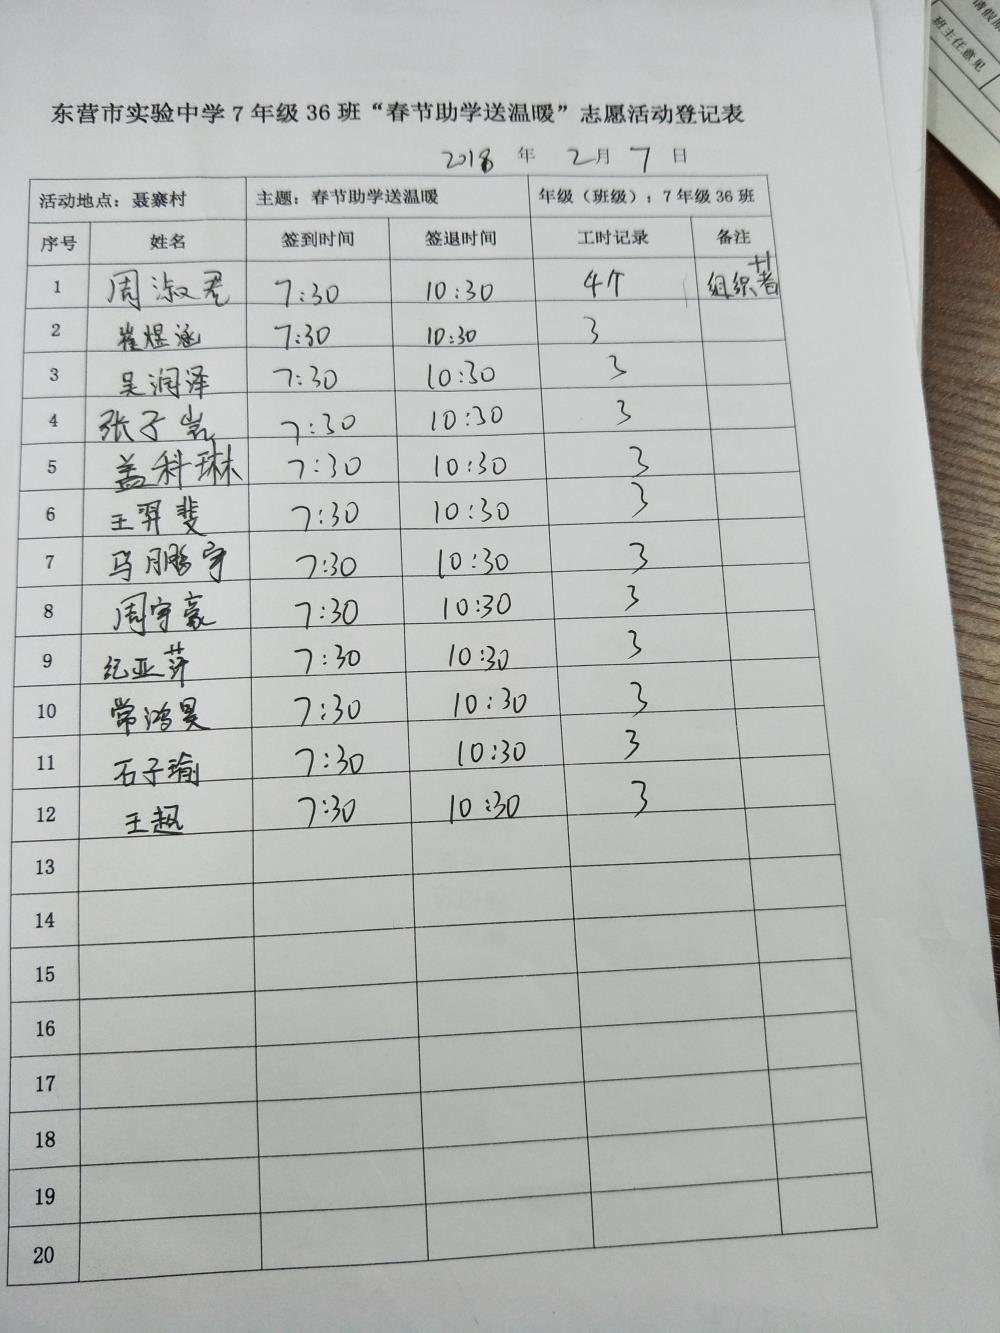 请假原
班主任意见
东营市实验中学7年级36班“春节助学送温暖”志愿活动登记表
2018 年 2月 7 日
活动地点：聂寨村 主题：春节助学送温暖 年级（班级）：7年级36班
序号 姓名 签到时间 签退时间 工时记录 备注
1 周淑君 7:30 10:30 4个 组织者
2 崔煜涵 7:30 10:30 3
3 吴润泽 7:30 10:30 3
4 张子岩 7:30 10:30 3
5 盖科琳 7:30 10:30 3
6 王羿斐 7:30 10:30 3
7 马鹏宇 7:30 10:30 3
8 周宇豪 7:30 10:30 3
9 纪亚莎 7:30 10:30 3
10 常鸿昊 7:30 10:30 3
11 石子瑜 7:30 10:30 3
12 王超 7:30 10:30 3
13
14
15
16
17
18
19
20